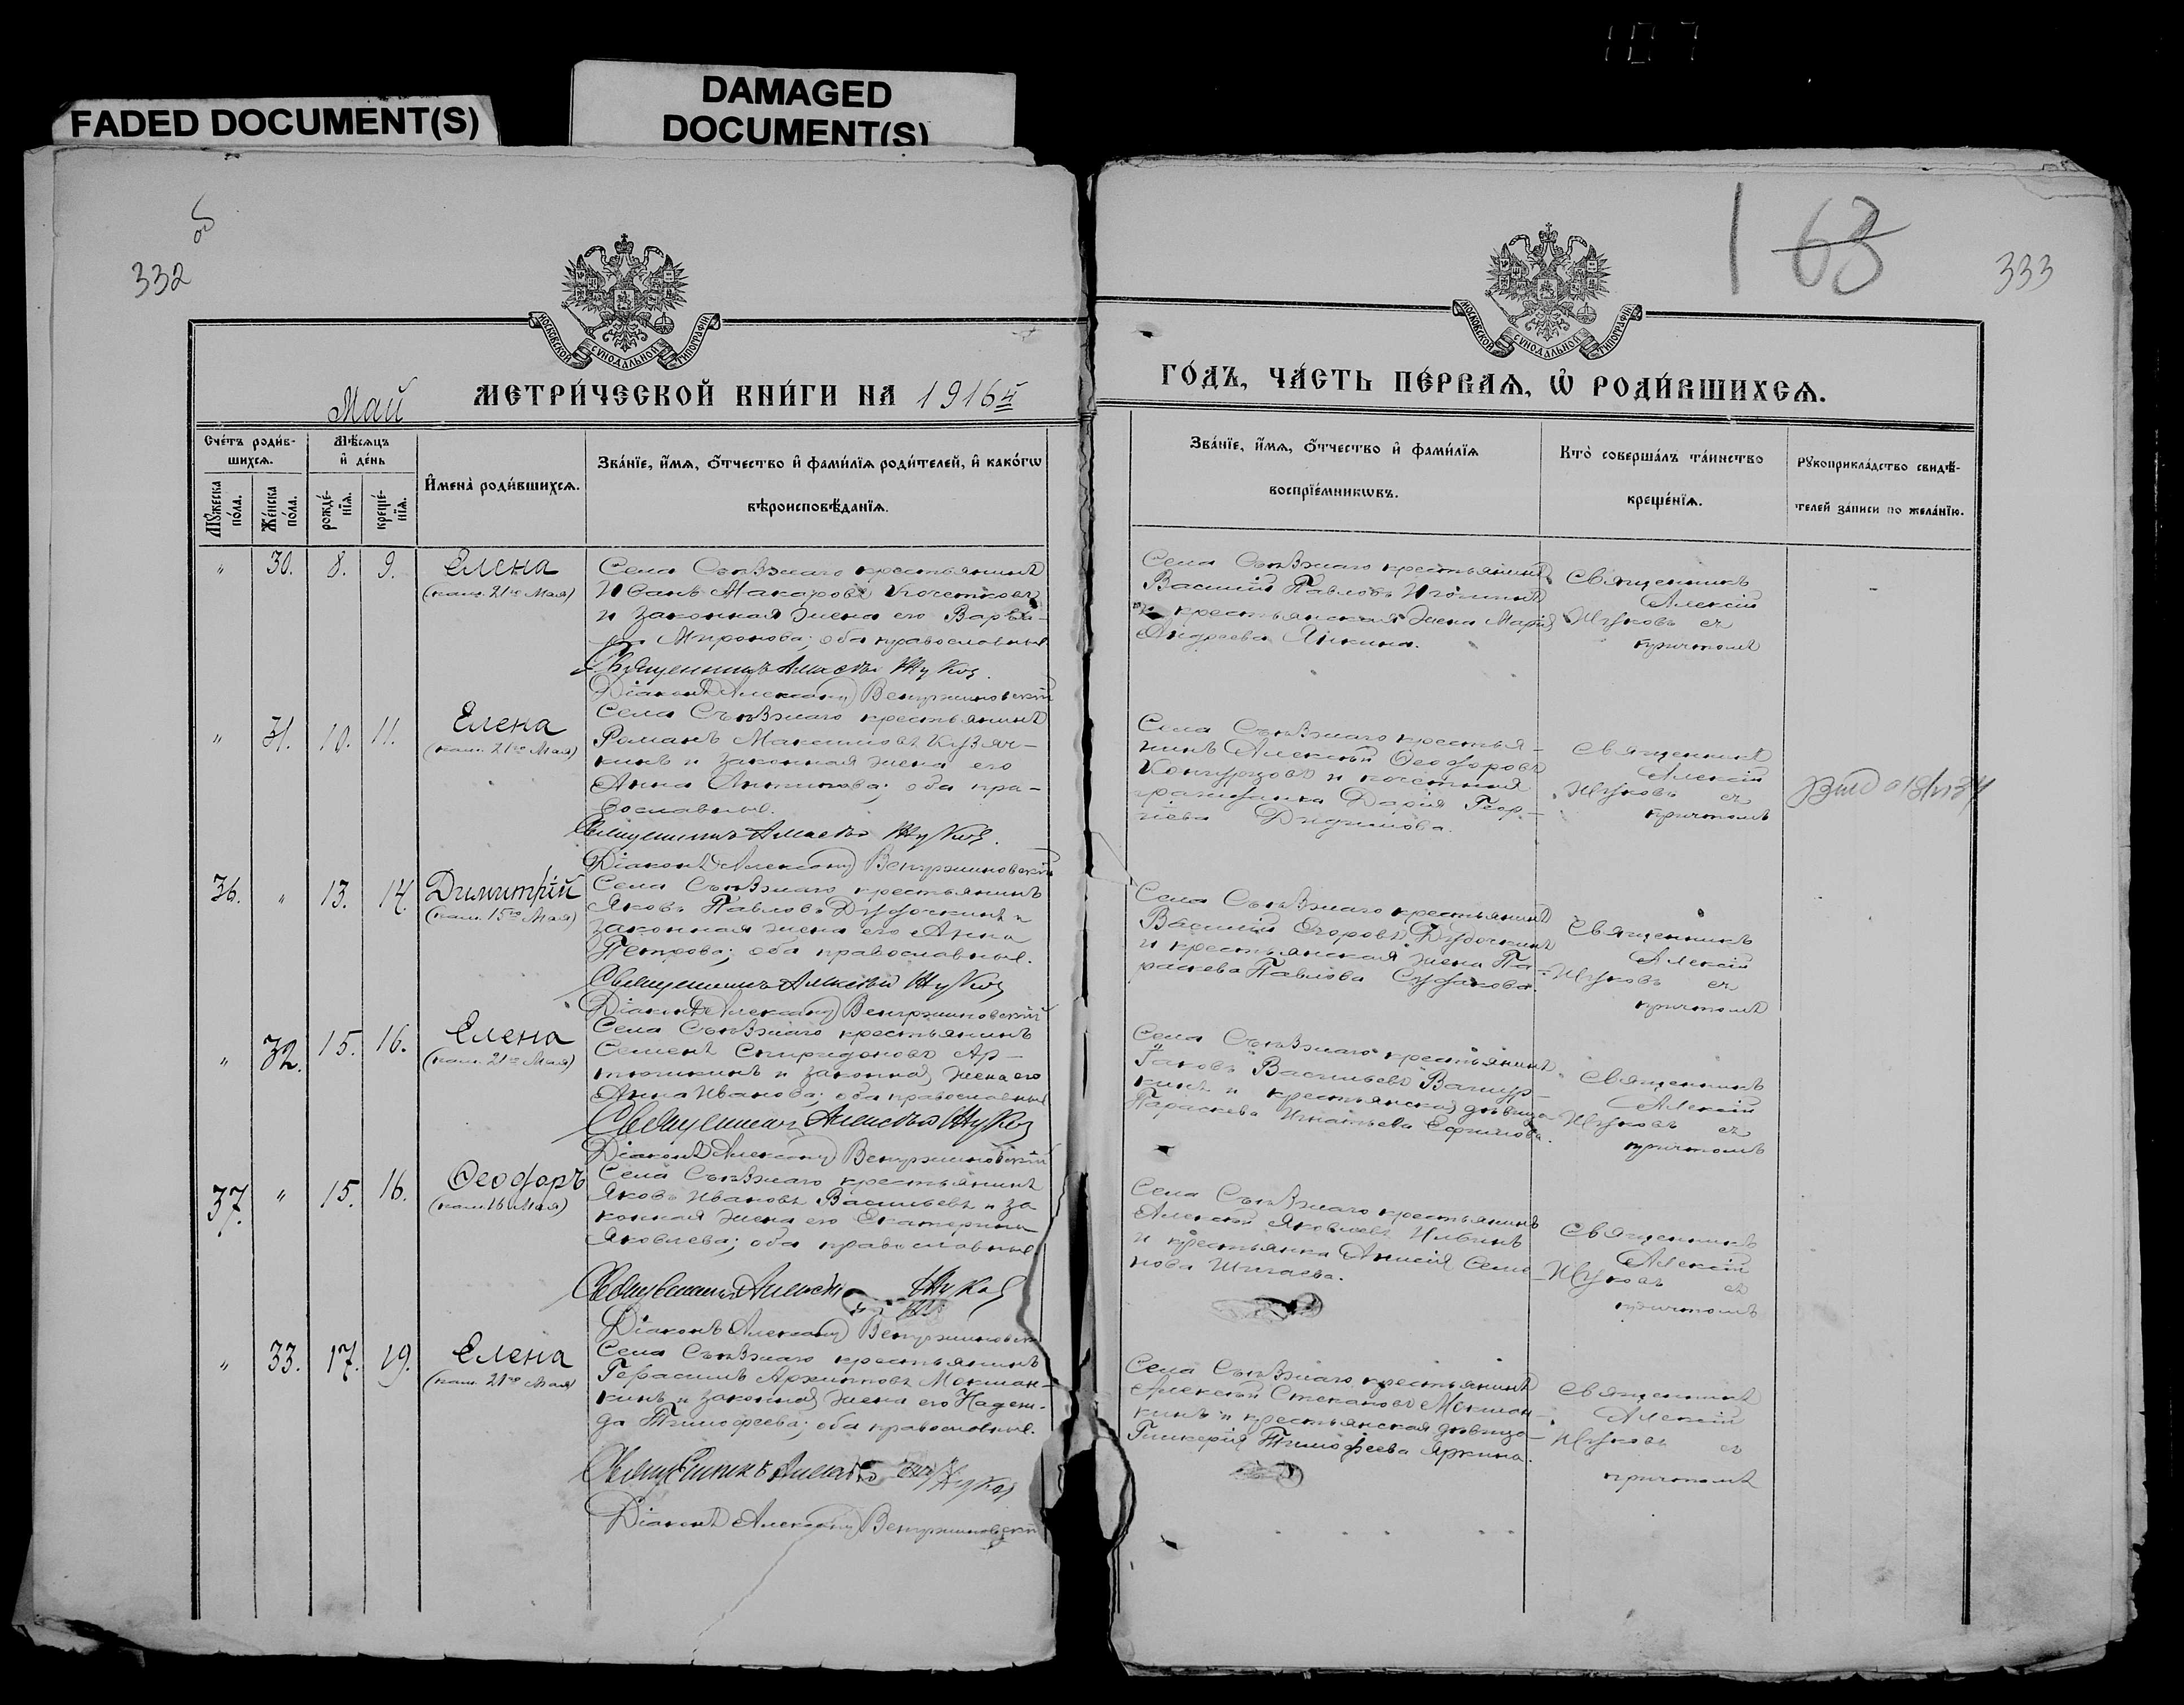 107
FADED DOCUMENT(S)
DAMAGED
DOCUMENT(S)
об
332
1 63
333
МОСКОВСКОЙ СУНОДАЛЬНОЙ ТИПОГРАФІИ
МОСКОВСКОЙ СУНОДАЛЬНОЙ ТИПОГРАФІИ
Май
МЕТРИ́ЧЕСКОЙ КНИ́ГИ НА 1916й
ГО́ДЪ, ЧА́СТЬ ПЕ́РВАѦ, Ѡ҆ РОДИ́ВШИХСѦ.
Сче́тъ роди́в-
шихсѧ.
Мѣ́сѧцъ
и҆ де́нь
Мꙋ́жеска
по́ла.
Же́нска
по́ла.
рожде́-
нїѧ.
креще́-
нїѧ.
И҆мена̀ роди́вшихсѧ.
Зва́нїе, и҆́мѧ, ѻ҆́тчество и҆ фами́лїѧ роди́телей, и҆ како́гѡ
вѣроисповѣ́данїѧ.
Зва́нїе, и҆́мѧ, ѻ҆́тчество и҆ фами́лїѧ
воспрїе́мникѡвъ.
Кто̀ соверша́лъ та́инство
креще́нїѧ.
Рꙋкоприкла́дство свидѣ́-
телей за́писи по жела́нїю.
" 30. 8. 9. Елена
(пам. 21го Мая)
Села Съѣзжаго крестьянинъ
Иванъ Макаровъ Кочетковъ
и законная жена его Варва-
ра Миронова; оба православные
Священникъ Алексѣй Жуков.
Діаконъ Александ Венгржиновскій
Села Съѣзжаго крестьянинъ
Василій Павловъ
и крестьянская жена Марія
Андреева Янкина.
Священникъ
Алексій
Жуковъ съ
причтомъ
" 31. 10. 11. Елена
(пам. 21го Мая)
Села Съѣзжаго крестьянинъ
Романъ Максимовъ Кузяч-
кинъ и законная жена его
Анна Антипова; оба пра-
вославные.
Священникъ Алексѣй Жуков.
Діаконъ Александ Венгржиновскій
Села Съѣзжаго крестья-
нинъ Алексѣй Ѳеодоровъ
и почетная
гражданка Дарія Геор-
гіева
Священникъ
Алексій
Жуковъ съ
причтомъ
36. " 13. 14. Димитрій
(пам. 15го Мая)
Села Съѣзжаго крестьянинъ
Яковъ Павловъ Дудочкинъ и
законная жена его Анна
Петрова; оба православные.
Священникъ Алексѣй Жуков
Діаконъ Александ Венгржиновскій
Села Съѣзжаго крестьянинъ
Василій Егоровъ Дудочкинъ
и крестьянская жена Па-
раскева Павлова Судакова.
Священникъ
Алексій
Жуковъ съ
причтомъ
" 32. 15. 16. Елена
(пам. 21го Мая)
Села Съѣзжаго крестьянинъ
Семенъ Спиридоновъ Ар-
тюшкинъ и законная жена его
Анна Иванова; оба православные
Священникъ Алексѣй Жуков
Діаконъ Александ Венгржиновскій
Села Съѣзжаго крестьянинъ
Іаковъ Васильевъ Вашур-
кинъ и крестьянская дѣвица
Параскева Игнатьева Ефимова.
Священникъ
Алексій
Жуковъ съ
причтомъ
37. " 15. 16. Ѳеодоръ
(пам. 16 Мая)
Села Съѣзжаго крестьянинъ
Яковъ Ивановъ Васильевъ и за-
конная жена его Екатерина
Яковлева; оба православные
Священникъ Алексѣй Жуков
Діаконъ Александ Венгржиновскій
Села Съѣзжаго крестьянинъ
Алексѣй Яковлевъ Ильинъ
и крестьянка Анисія Семе-
нова Шигаева.
Священникъ
Алексій
Жуковъ съ
причтомъ
" 33. 17. 19. Елена
(пам. 21го Мая)
Села Съѣзжаго крестьянинъ
Герасимъ Архиповъ Мокшан-
кинъ и законная жена его Надеж-
да Тимофеева; оба православные.
Священникъ Алексѣй Жуков
Діаконъ Александ Венгржиновскій
Села Съѣзжаго крестьянинъ
Алексѣй Степановъ Мокшан-
кинъ и крестьянская дѣвица
Гликерія Тимофеева Яркина.
Священникъ
Алексій
Жуковъ съ
причтомъ